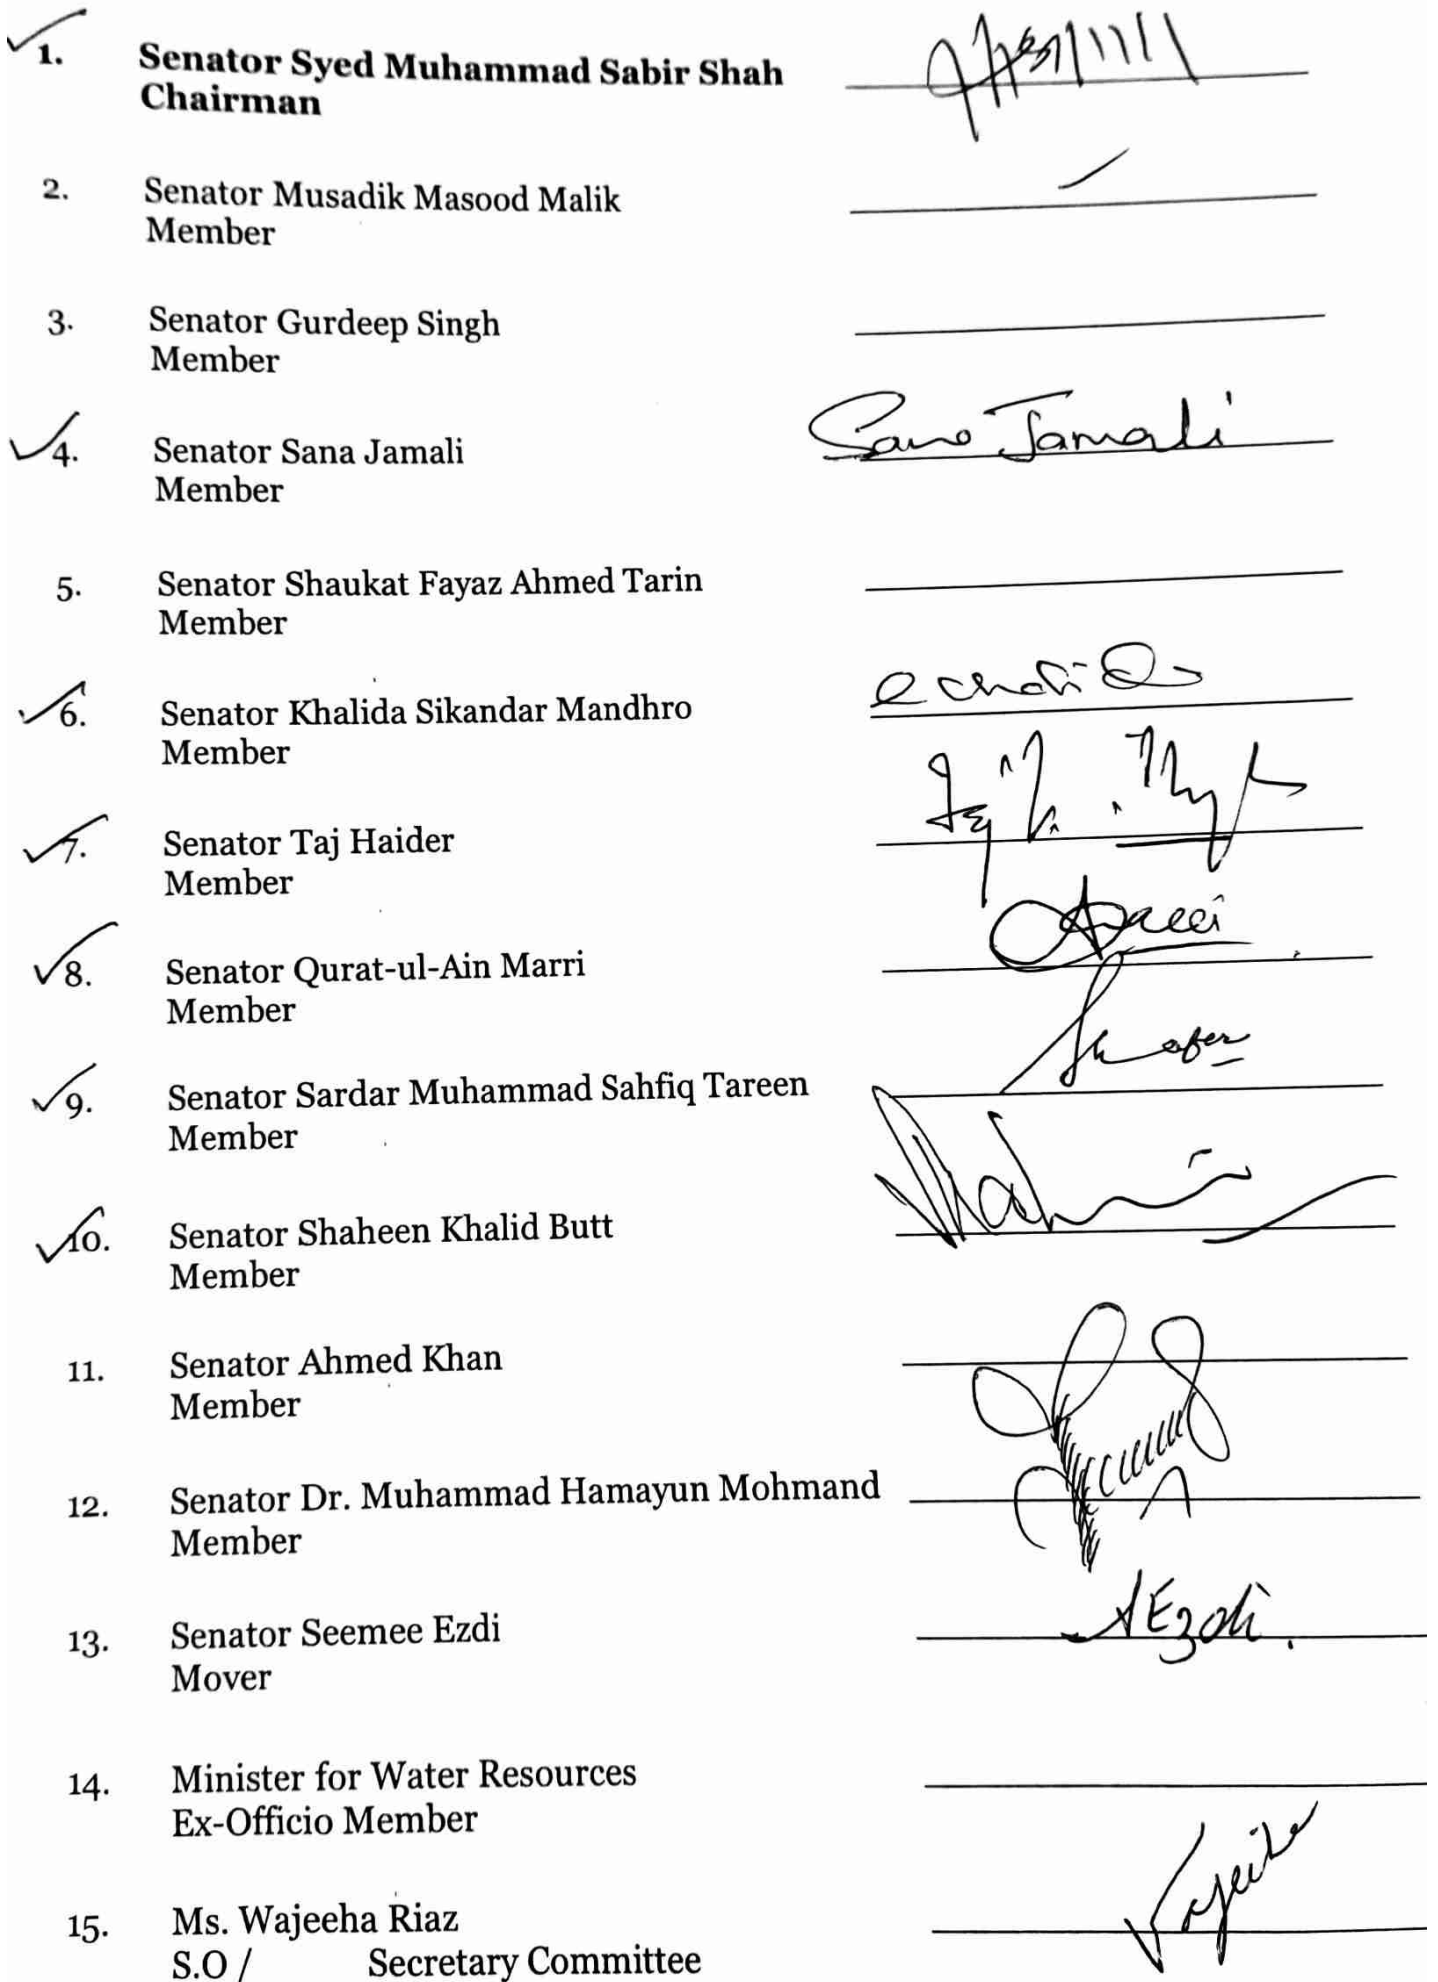 1. Senator Syed Muhammad Sabir Shah
Chairman
2. Senator Musadik Masood Malik
Member
3. Senator Gurdeep Singh
Member
4. Senator Sana Jamali Sana Jamali
Member
5. Senator Shaukat Fayaz Ahmed Tarin
Member
6. Senator Khalida Sikandar Mandhro
Member
7. Senator Taj Haider
Member
8. Senator Qurat-ul-Ain Marri
Member
9. Senator Sardar Muhammad Sahfiq Tareen
Member
10. Senator Shaheen Khalid Butt
Member
11. Senator Ahmed Khan
Member
12. Senator Dr. Muhammad Hamayun Mohmand
Member
13. Senator Seemee Ezdi SEzdi.
Mover
14. Minister for Water Resources
Ex-Officio Member
15. Ms. Wajeeha Riaz
S.O / Secretary Committee